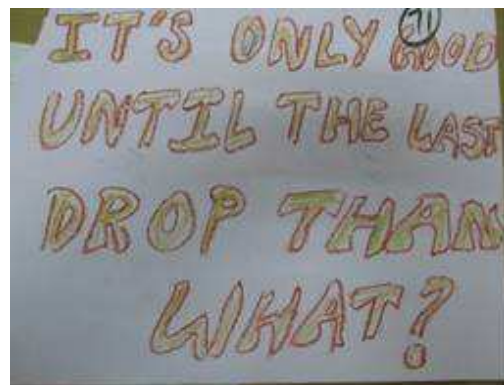 IT'S ONLY GOOD
71
UNTIL THE LAST
DROP THAN
WHAT?